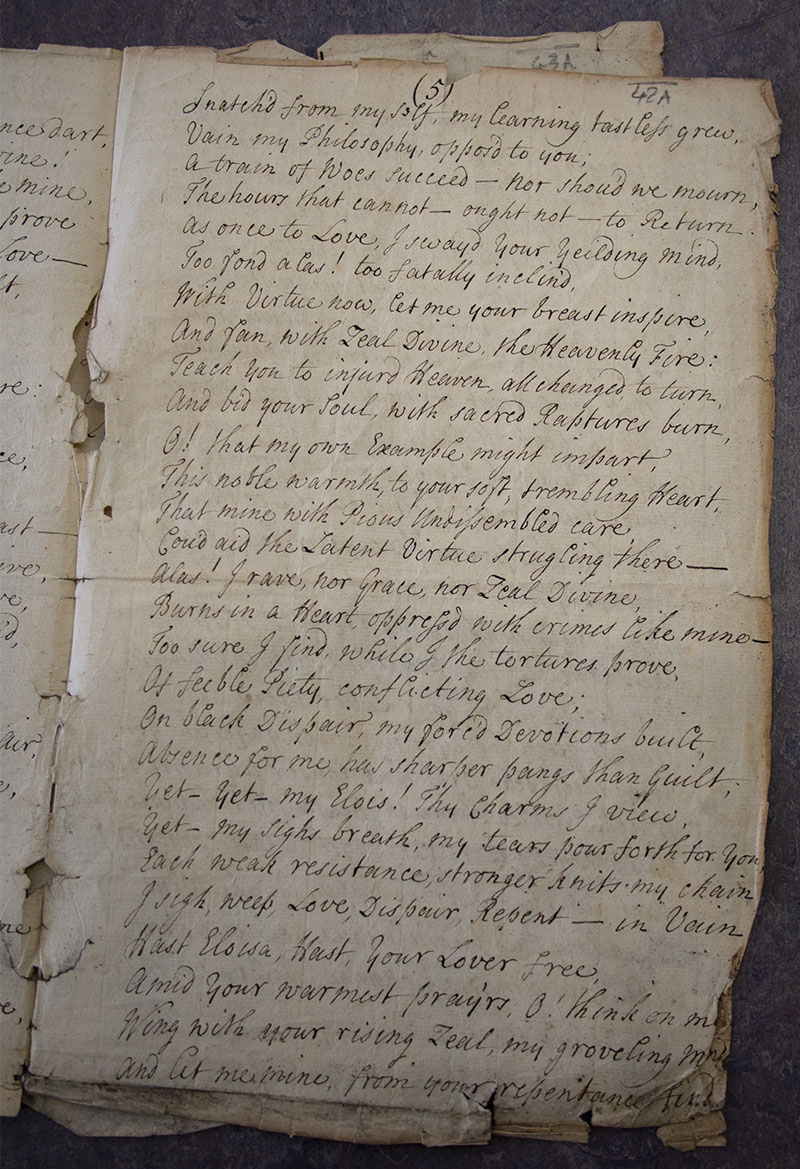 43A
42A
(5)
Snatch'd from my self, my learning tastless grew,
Vain my Philosophy, oppos'd to you;
A train of Woes succeed — nor shoud we mourn,
The hours that cannot — ought not — to Return.
As once to Love, I sway'd your yeilding mind,
Too fond alas! too fatally inclin'd,
With Virtue now, let me your breast inspire,
And fan, with Zeal Divine, the Heavenly Fire:
Teach you to injur'd Heaven, all chang'd, to turn,
And bid your Soul, with sacred Raptures burn,
O! that my own Example might impart,
This noble warmth, to your soft, trembling Heart,
That mine with Pious Undissembled care,
Coud aid the Latent Virtue strugling there —
Alas! I rave, nor Grace, nor Zeal Divine,
Burns in a Heart, oppress'd with crimes like mine —
Too sure I find, while I the tortures prove,
Of feeble Piety, conflicting Love;
On black Dispair, my forc'd Devotions built,
Absence for me, has sharper pangs than Guilt;
Yet — Yet — my Elois! Thy Charms I view,
Yet — my sighs breath, my tears pour forth for You,
Each weak resistance, stronger knits my chain
I sigh, weep, Love, Dispair, Repent — in Vain
Hast Eloisa, Hast, Your Lover free,
Amid Your warmest pray'rs, O! think on me
Wing with your rising Zeal, my groveling mind
And let me mine, from your repentance find
nce dart,
vine!
e mine,
prove
Love —
lt,
re:
ce,
ast —
ive,
ve,
'd,
air,
e,
me
e,